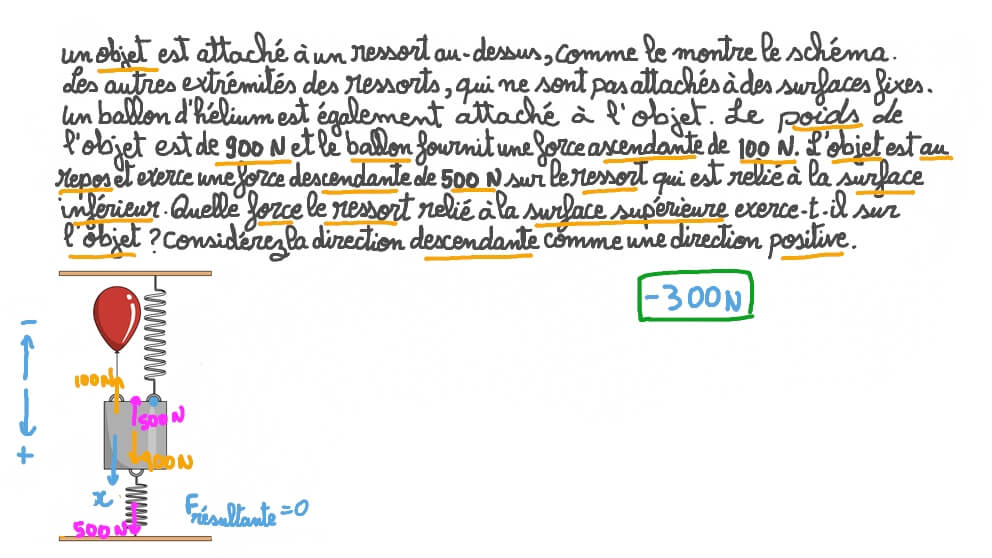 un objet est attaché à un ressort au-dessus, comme le montre le schéma.
Les autres extrémités des ressorts, qui ne sont pas attachés à des surfaces fixes.
Un ballon d'hélium est également attaché à l'objet. Le poids de
l'objet est de 900 N et le ballon fournit une force ascendante de 100 N. L'objet est au
repos et exerce une force descendante de 500 N sur le ressort qui est relié à la surface
inférieur. Quelle force le ressort relié à la surface supérieure exerce-t-il sur
l'objet ? Considérez la direction descendante comme une direction positive.
-300N
-
100N
500N
900N
+
x
Frésultante=0
500N